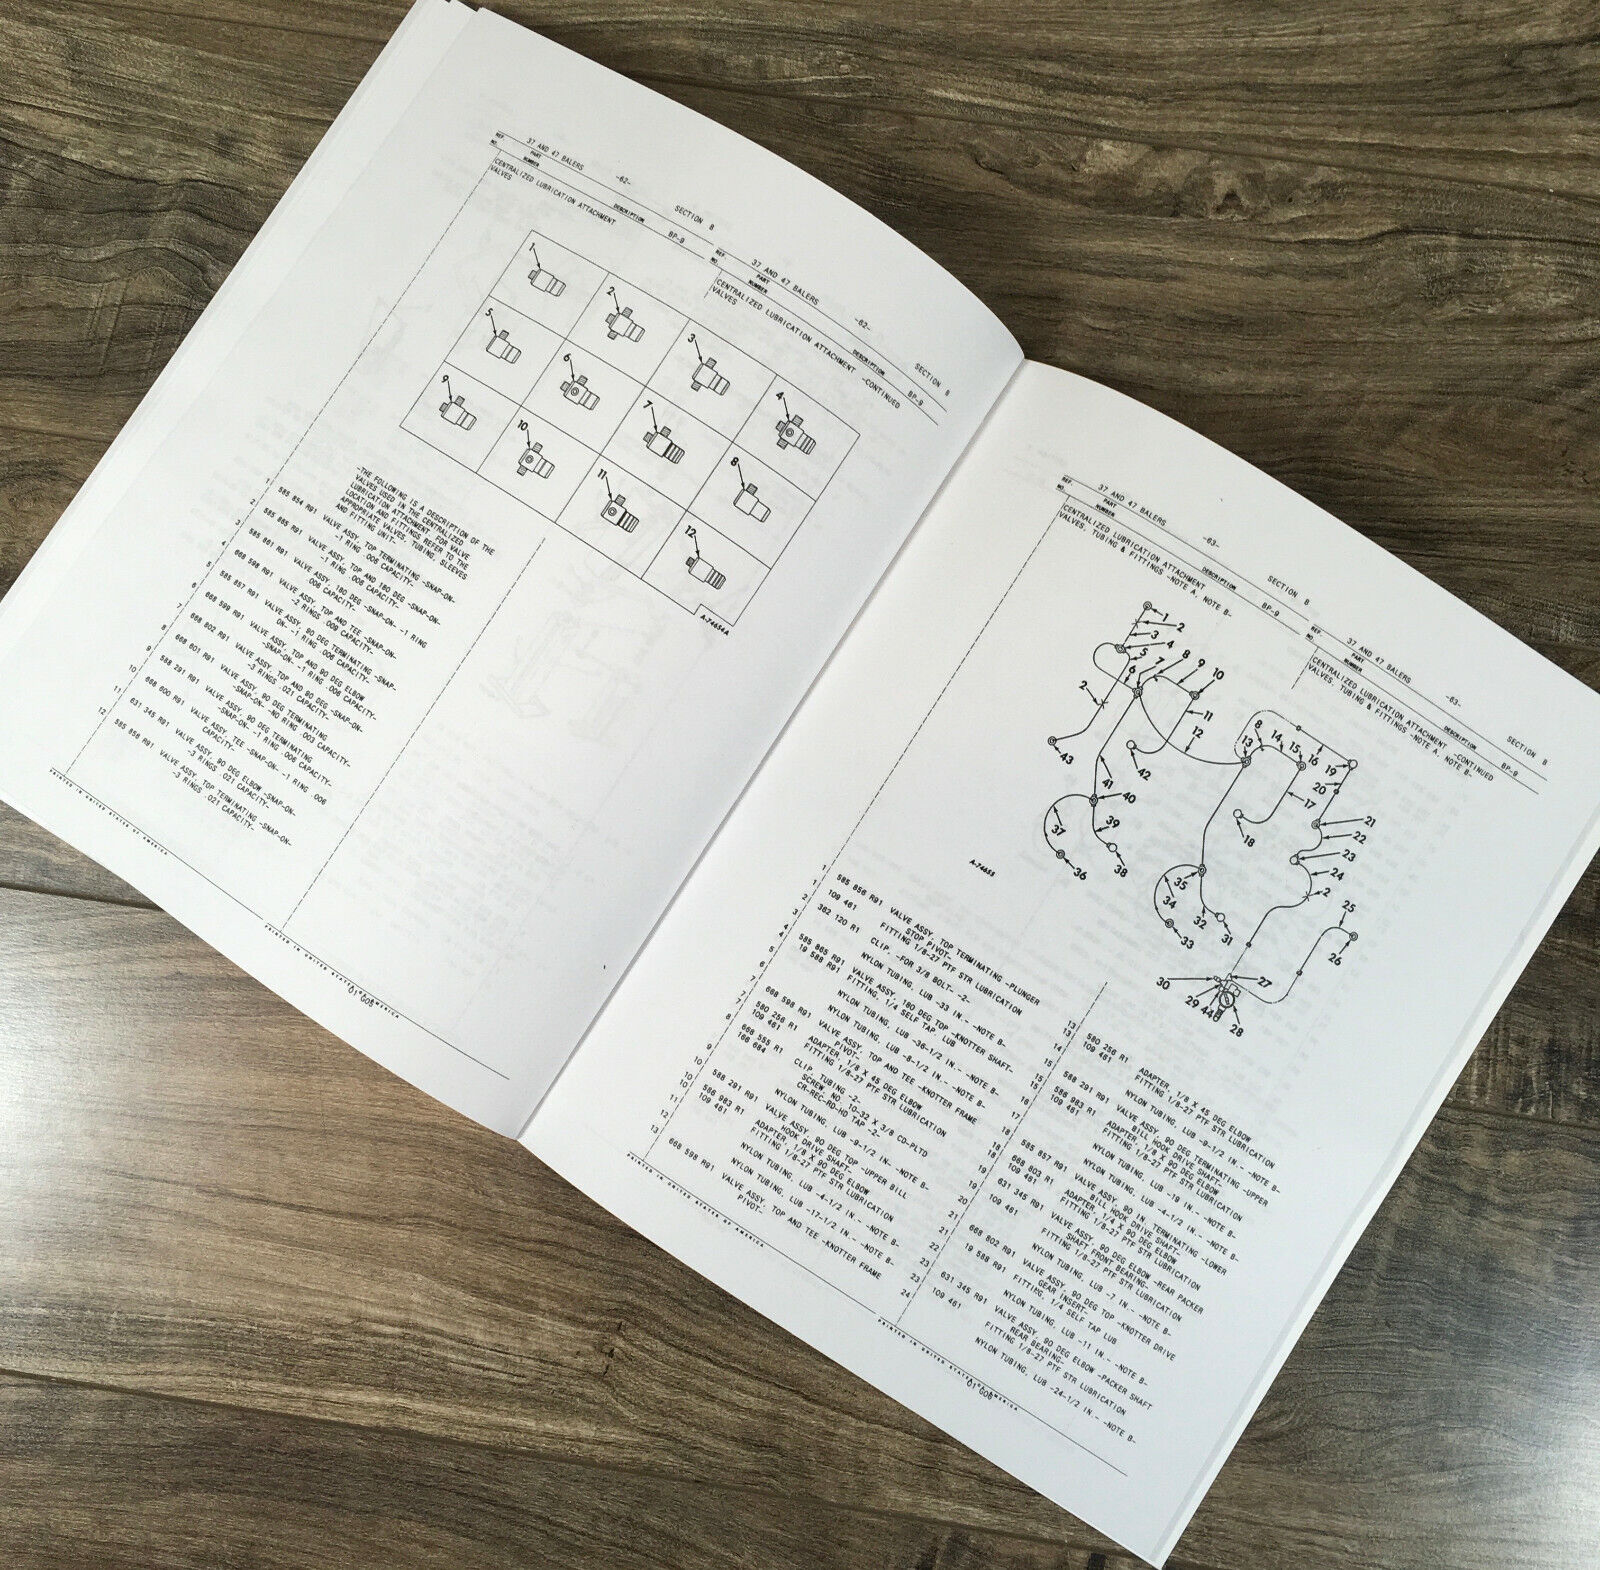 37 AND 47 BALERS
-62-
SECTION B
REF NO.
PART NUMBER
DESCRIPTION
BP-9
CENTRALIZED LUBRICATION ATTACHMENT
VALVES
37 AND 47 BALERS
-62-
SECTION B
REF NO.
PART NUMBER
DESCRIPTION
BP-9
CENTRALIZED LUBRICATION ATTACHMENT -CONTINUED
VALVES
1
2
3
4
5
6
7
8
9
10
11
12
A-74654A
-THE FOLLOWING IS A DESCRIPTION OF THE
VALVES USED IN THE CENTRALIZED
LUBRICATION ATTACHMENT. FOR VALVE
LOCATION AND FITTINGS REFER TO THE
APPROPRIATE VALVES, TUBING, SLEEVES
AND FITTING UNIT-
585 854 R91 VALVE ASSY, TOP TERMINATING -SNAP-ON-
-1 RING .006 CAPACITY-
2 585 865 R91 VALVE ASSY, TOP AND 180 DEG -SNAP-ON-
-1 RING .006 CAPACITY-
3 585 861 R91 VALVE ASSY, 180 DEG -SNAP-ON- -1 RING
.006 CAPACITY-
4 668 598 R91 VALVE ASSY, TOP AND TEE -SNAP-ON-
-2 RINGS .009 CAPACITY-
5 585 857 R91 VALVE ASSY, 90 DEG TERMINATING -SNAP-
ON- -1 RING .006 CAPACITY-
6 668 599 R91 VALVE ASSY, TOP AND 90 DEG ELBOW
-SNAP-ON- -1 RING .006 CAPACITY-
7 668 602 R91 VALVE ASSY, TOP AND 90 DEG -SNAP-ON-
-3 RINGS .021 CAPACITY-
8 668 601 R91 VALVE ASSY, 90 DEG TERMINATING
-SNAP-ON- -NO RING .003 CAPACITY-
9 588 291 R91 VALVE ASSY, 90 DEG TERMINATING
-SNAP-ON- -1 RING .006 CAPACITY-
10 668 600 R91 VALVE ASSY, TEE -SNAP-ON- -1 RING .006
CAPACITY-
11 631 345 R91 VALVE ASSY, 90 DEG ELBOW -SNAP-ON-
-3 RINGS .021 CAPACITY-
12 585 856 R91 VALVE ASSY, TOP TERMINATING -SNAP-ON-
-3 RINGS .021 CAPACITY-
PRINTED IN UNITED STATES OF AMERICA
PRINTED IN UNITED STATES OF AMERICA
37 AND 47 BALERS
-63-
SECTION B
REF NO.
PART NUMBER
DESCRIPTION
BP-9
CENTRALIZED LUBRICATION ATTACHMENT
VALVES, TUBING & FITTINGS -NOTE A, NOTE B-
37 AND 47 BALERS
-63-
SECTION B
REF NO.
PART NUMBER
DESCRIPTION
BP-9
CENTRALIZED LUBRICATION ATTACHMENT -CONTINUED
VALVES, TUBING & FITTINGS -NOTE A, NOTE B-
1
2
3
4
5
6
7
8
9
10
2
11
12
43
42
41
40
39
38
37
36
8
13
14
15
16
19
20
17
18
21
22
23
24
2
25
26
35
34
33
32
31
30
29
44
27
28
A-74655
1 585 856 R91 VALVE ASSY, TOP TERMINATING -PLUNGER
STOP PIVOT-
1 109 461 FITTING 1/8-27 PTF STR LUBRICATION
2 362 120 R1 CLIP, -FOR 3/8 BOLT- -2-
3 NYLON TUBING, LUB -33 IN.- -NOTE B-
4 585 865 R91 VALVE ASSY, 180 DEG TOP -KNOTTER SHAFT-
4 19 588 R91 FITTING, 1/4 SELF TAP LUB
5 NYLON TUBING, LUB -36-1/2 IN.- -NOTE B-
6 NYLON TUBING, LUB -8-1/2 IN.- -NOTE B-
7 668 598 R91 VALVE ASSY, TOP AND TEE -KNOTTER FRAME
PIVOT-
7 580 256 R1 ADAPTER, 1/8 X 45 DEG ELBOW
7 109 461 FITTING 1/8-27 PTF STR LUBRICATION
8 668 555 R1 CLIP, TUBING -2-
166 684 SCREW NO. 10-32 X 3/8 CD-PLTD
CR-REC-RD-HD TAP -2-
9 NYLON TUBING, LUB -9-1/2 IN.- -NOTE B-
10 588 291 R91 VALVE ASSY, 90 DEG TOP -UPPER BILL
HOOK DRIVE SHAFT-
10 588 983 R1 ADAPTER, 1/8 X 90 DEG ELBOW
10 109 461 FITTING 1/8-27 PTF STR LUBRICATION
11 NYLON TUBING, LUB -4-1/2 IN.- -NOTE B-
12 NYLON TUBING, LUB -17-1/2 IN.- -NOTE B-
13 668 598 R91 VALVE ASSY, TOP AND TEE -KNOTTER FRAME
PIVOT-
13 580 256 R1 ADAPTER, 1/8 X 45 DEG ELBOW
13 109 461 FITTING 1/8-27 PTF STR LUBRICATION
14 NYLON TUBING, LUB -9-1/2 IN.- -NOTE B-
15 588 291 R91 VALVE ASSY, 90 DEG TERMINATING -UPPER
BILL HOOK DRIVE SHAFT-
15 588 983 R1 ADAPTER, 1/8 X 90 DEG ELBOW
15 109 461 FITTING 1/8-27 PTF STR LUBRICATION
16 NYLON TUBING, LUB -19 IN.- -NOTE B-
17 NYLON TUBING, LUB -4-1/2 IN.- -NOTE B-
18 585 857 R91 VALVE ASSY, 90 IN. TERMINATING -LOWER
BILL HOOK DRIVE SHAFT-
18 668 603 R1 ADAPTER, 1/4 X 90 DEG ELBOW
18 109 461 FITTING 1/8-27 PTF STR LUBRICATION
19 631 345 R91 VALVE ASSY, 90 DEG ELBOW -REAR PACKER
SHAFT FRONT BEARING-
19 109 461 FITTING 1/8-27 PTF STR LUBRICATION
20 NYLON TUBING, LUB -7 IN.- -NOTE B-
21 668 602 R91 VALVE ASSY, 90 DEG TOP -KNOTTER DRIVE
GEAR INSERT-
21 19 588 R91 FITTING, 1/4 SELF TAP LUB
22 NYLON TUBING, LUB -11 IN.- -NOTE B-
23 631 345 R91 VALVE ASSY, 90 DEG ELBOW -PACKER SHAFT
REAR BEARING-
23 109 461 FITTING 1/8-27 PTF STR LUBRICATION
24 NYLON TUBING, LUB -24-1/2 IN.- -NOTE B-
PRINTED IN UNITED STATES OF AMERICA
PRINTED IN UNITED STATES OF AMERICA